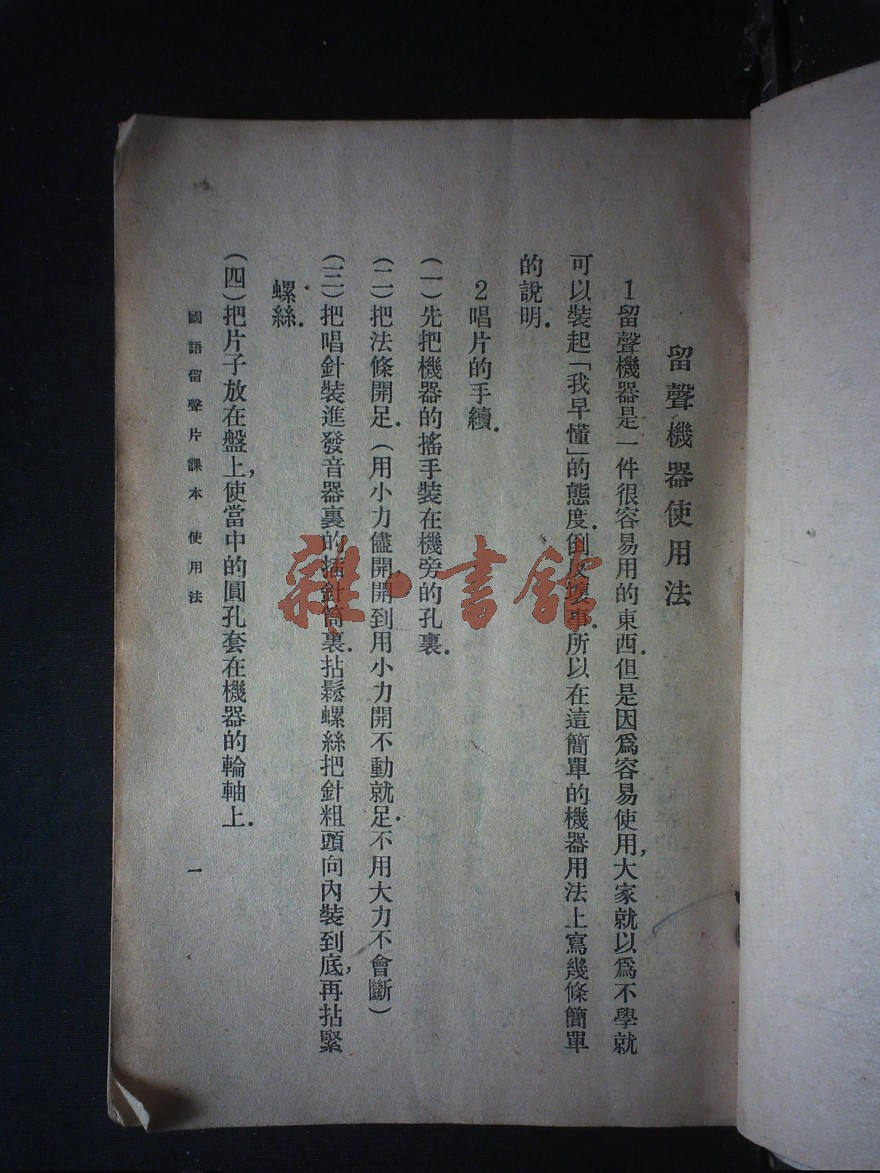 留聲機器使用法
1留聲機器是一件很容易用的東西.但是因爲容易使用,大家就以爲不學就
可以裝起「我早懂」的態度.倒反壞事.所以在這簡單的機器用法上寫幾條簡單
的說明.
2唱片的手續.
(一)先把機器的搖手裝在機旁的孔裏.
(二)把法條開足.(用小力儘開開到用小力開不動就足.不用大力不會斷)
(三)把唱針裝進發音器裏的插針筒裏.拈鬆螺絲把針粗頭向內裝到底,再拈緊
螺絲.
(四)把片子放在盤上,使當中的圓孔套在機器的輪軸上.
國語留聲片課本 使用法 一
雜·書館